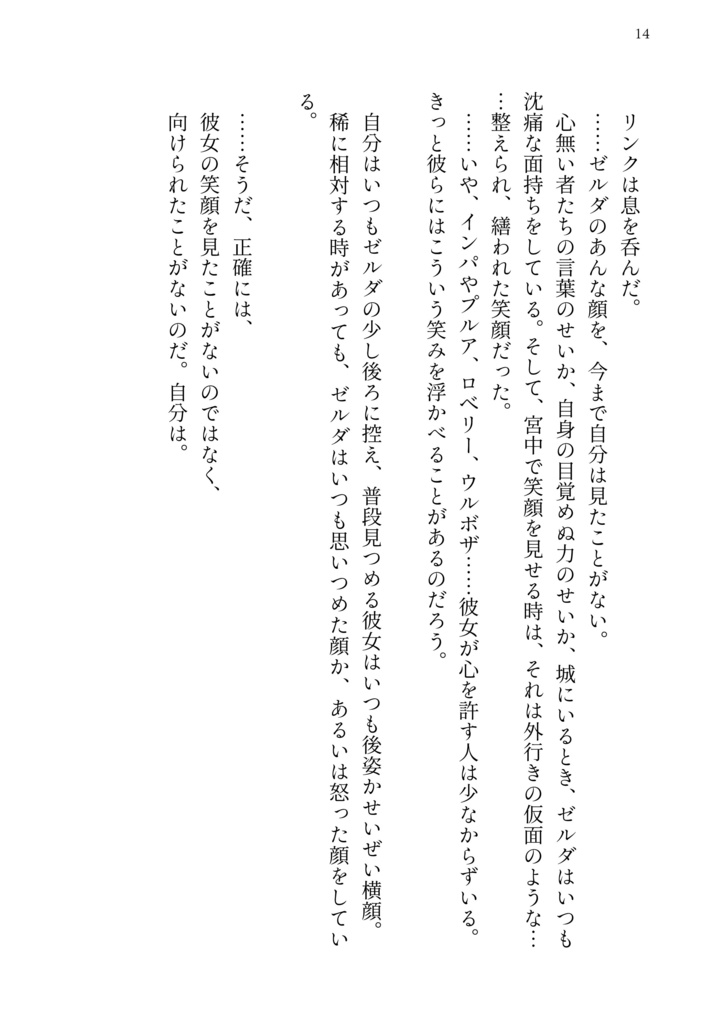 14
リンクは息を呑んだ。
……ゼルダのあんな顔を、今まで自分は見たことがない。
心無い者たちの言葉のせいか、自身の目覚めぬ力のせいか、城にいるとき、ゼルダはいつも
沈痛な面持ちをしている。そして、宮中で笑顔を見せる時は、それは外行きの仮面のような…
…整えられ、繕われた笑顔だった。
……いや、インパやプルア、ロベリー、ウルボザ……彼女が心を許す人は少なからずいる。
きっと彼らにはこういう笑みを浮かべることがあるのだろう。
自分はいつもゼルダの少し後ろに控え、普段見つめる彼女はいつも後姿かせいぜい横顔。
稀に相対する時があっても、ゼルダはいつも思いつめた顔か、あるいは怒った顔をしてい
る。
……そうだ、正確には、
彼女の笑顔を見たことがないのではなく、
向けられたことがないのだ。自分は。